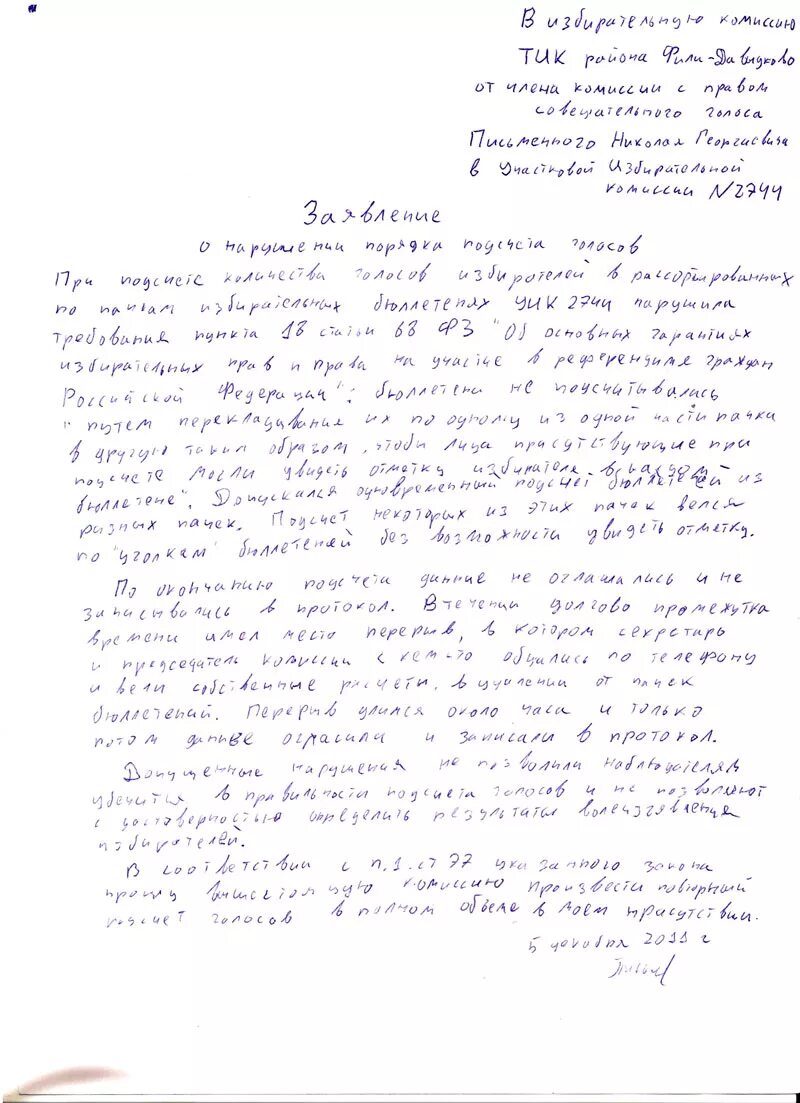 В избирательную комиссию
ТИК района Фили-Давыдково
от члена комиссии с правом
совещательного голоса
Письменного Николая Георгиевича
в Участковой Избирательной
комиссии N2744
Заявление
о нарушении порядка подсчета голосов
При подсчете количества голосов избирателей в рассортированных
по пачкам избирательных бюллетенях УИК 2744 нарушила
требования пункта 13 статьи 68 ФЗ "Об основных гарантиях
избирательных прав и права на участие в референдуме граждан
Российской Федерации": бюллетени не подсчитывались
"путем перекладывания их по одному из одной части пачки
в другую таким образом, чтобы лица присутствующие при
подсчете могли увидеть отметку избирателя в каждом
бюллетене". Допускался одновременный подсчет бюллетеней из
разных пачек. Подсчет некоторых из этих пачек велся
по "уголкам" бюллетеней без возможности увидеть отметку.
По окончанию подсчета данные не оглашались и не
записывались в протокол. В течении долгово промежутка
времени имел место перерыв, в котором секретарь
и председатель комиссии с кем-то общались по телефону
и вели собственные расчеты, в удалении от пачек
бюллетеней. Перерыв длился около часа и только
потом данные огласили и записали в протокол.
Допущенные нарушения не позволили наблюдателям
убечится в правильности подсчета голосов и не позволяют
с достоверностью определить результаты волеизявления
избирателей.
В соответствии с п.1.ст 77 указанного закона
прошу вышестоящую комиссию произвести повторный
подсчет голосов в полном объеме в моем присутствии.
5 декабря 2011 г